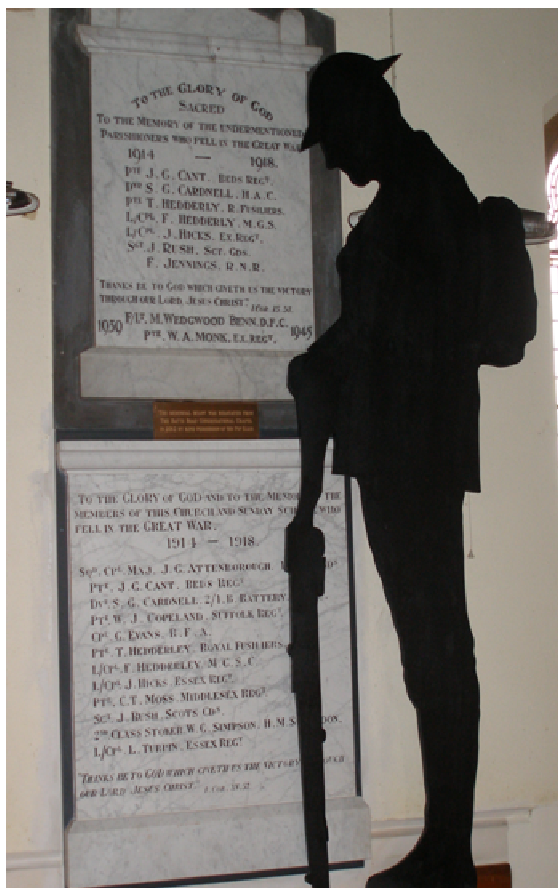 TO THE GLORY OF GOD
SACRED
TO THE MEMORY OF THE UNDERMENTIONED
PARISHIONERS WHO FELL IN THE GREAT WAR
1914 — 1918.
PTE J. G. CANT. BEDS REGT.
DVR S. G. CARDNELL. H.A.C.
PTE T. HEDDERLY. R. FUSILIERS.
L/CPL F. HEDDERLY. M.G.S.
L/CPL J. HICKS. EX. REGT.
SGT J. RUSH. SCT. GDS.
F. JENNINGS. R.N.R.
THANKS BE TO GOD WHICH GIVETH US THE VICTORY
THROUGH OUR LORD JESUS CHRIST. 1 COR. 15.57.
1939 F/LT. M. WEDGWOOD BENN. D.F.C. 1945
PTE. W. A. MONK. EX. REGT.
TO THE GLORY OF GOD AND TO THE THE
MEMBERS OF THIS CHURCH AND SUNDAY WHO
FELL IN THE GREAT WAR.
1914 — 1918.
SQD. CPL MAJ. J. G. ATTENBOROUGH.
PTE. J. G. CANT. BEDS REGT.
DVR. S. G. CARDNELL. 2/1.B BATTERY.
PTE W. J. COPELAND. SUFFOLK REGT.
CPL G. EVANS. R.F.A.
PTE. T. HEDDERLEY. ROYAL FUSILIERS
L/CPL F. HEDDERLY. M.G.S.C.
L/CPL J. HICKS. ESSEX REGT.
PTE. C. T. MOSS. MIDDLESEX REGT.
SGT J. RUSH. SCOTS GDS.
2ND CLASS STOKER W. G. SIMPSON. H.M.S.
L/CPL L. TURPIN. ESSEX REGT
"THANKS BE TO GOD WHICH GIVETH US THE VICTORY
OUR LORD JESUS CHRIST." 1 COR. 15.57